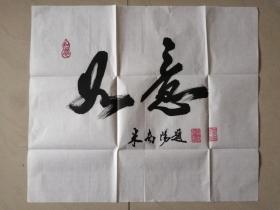 如意
米南阳题